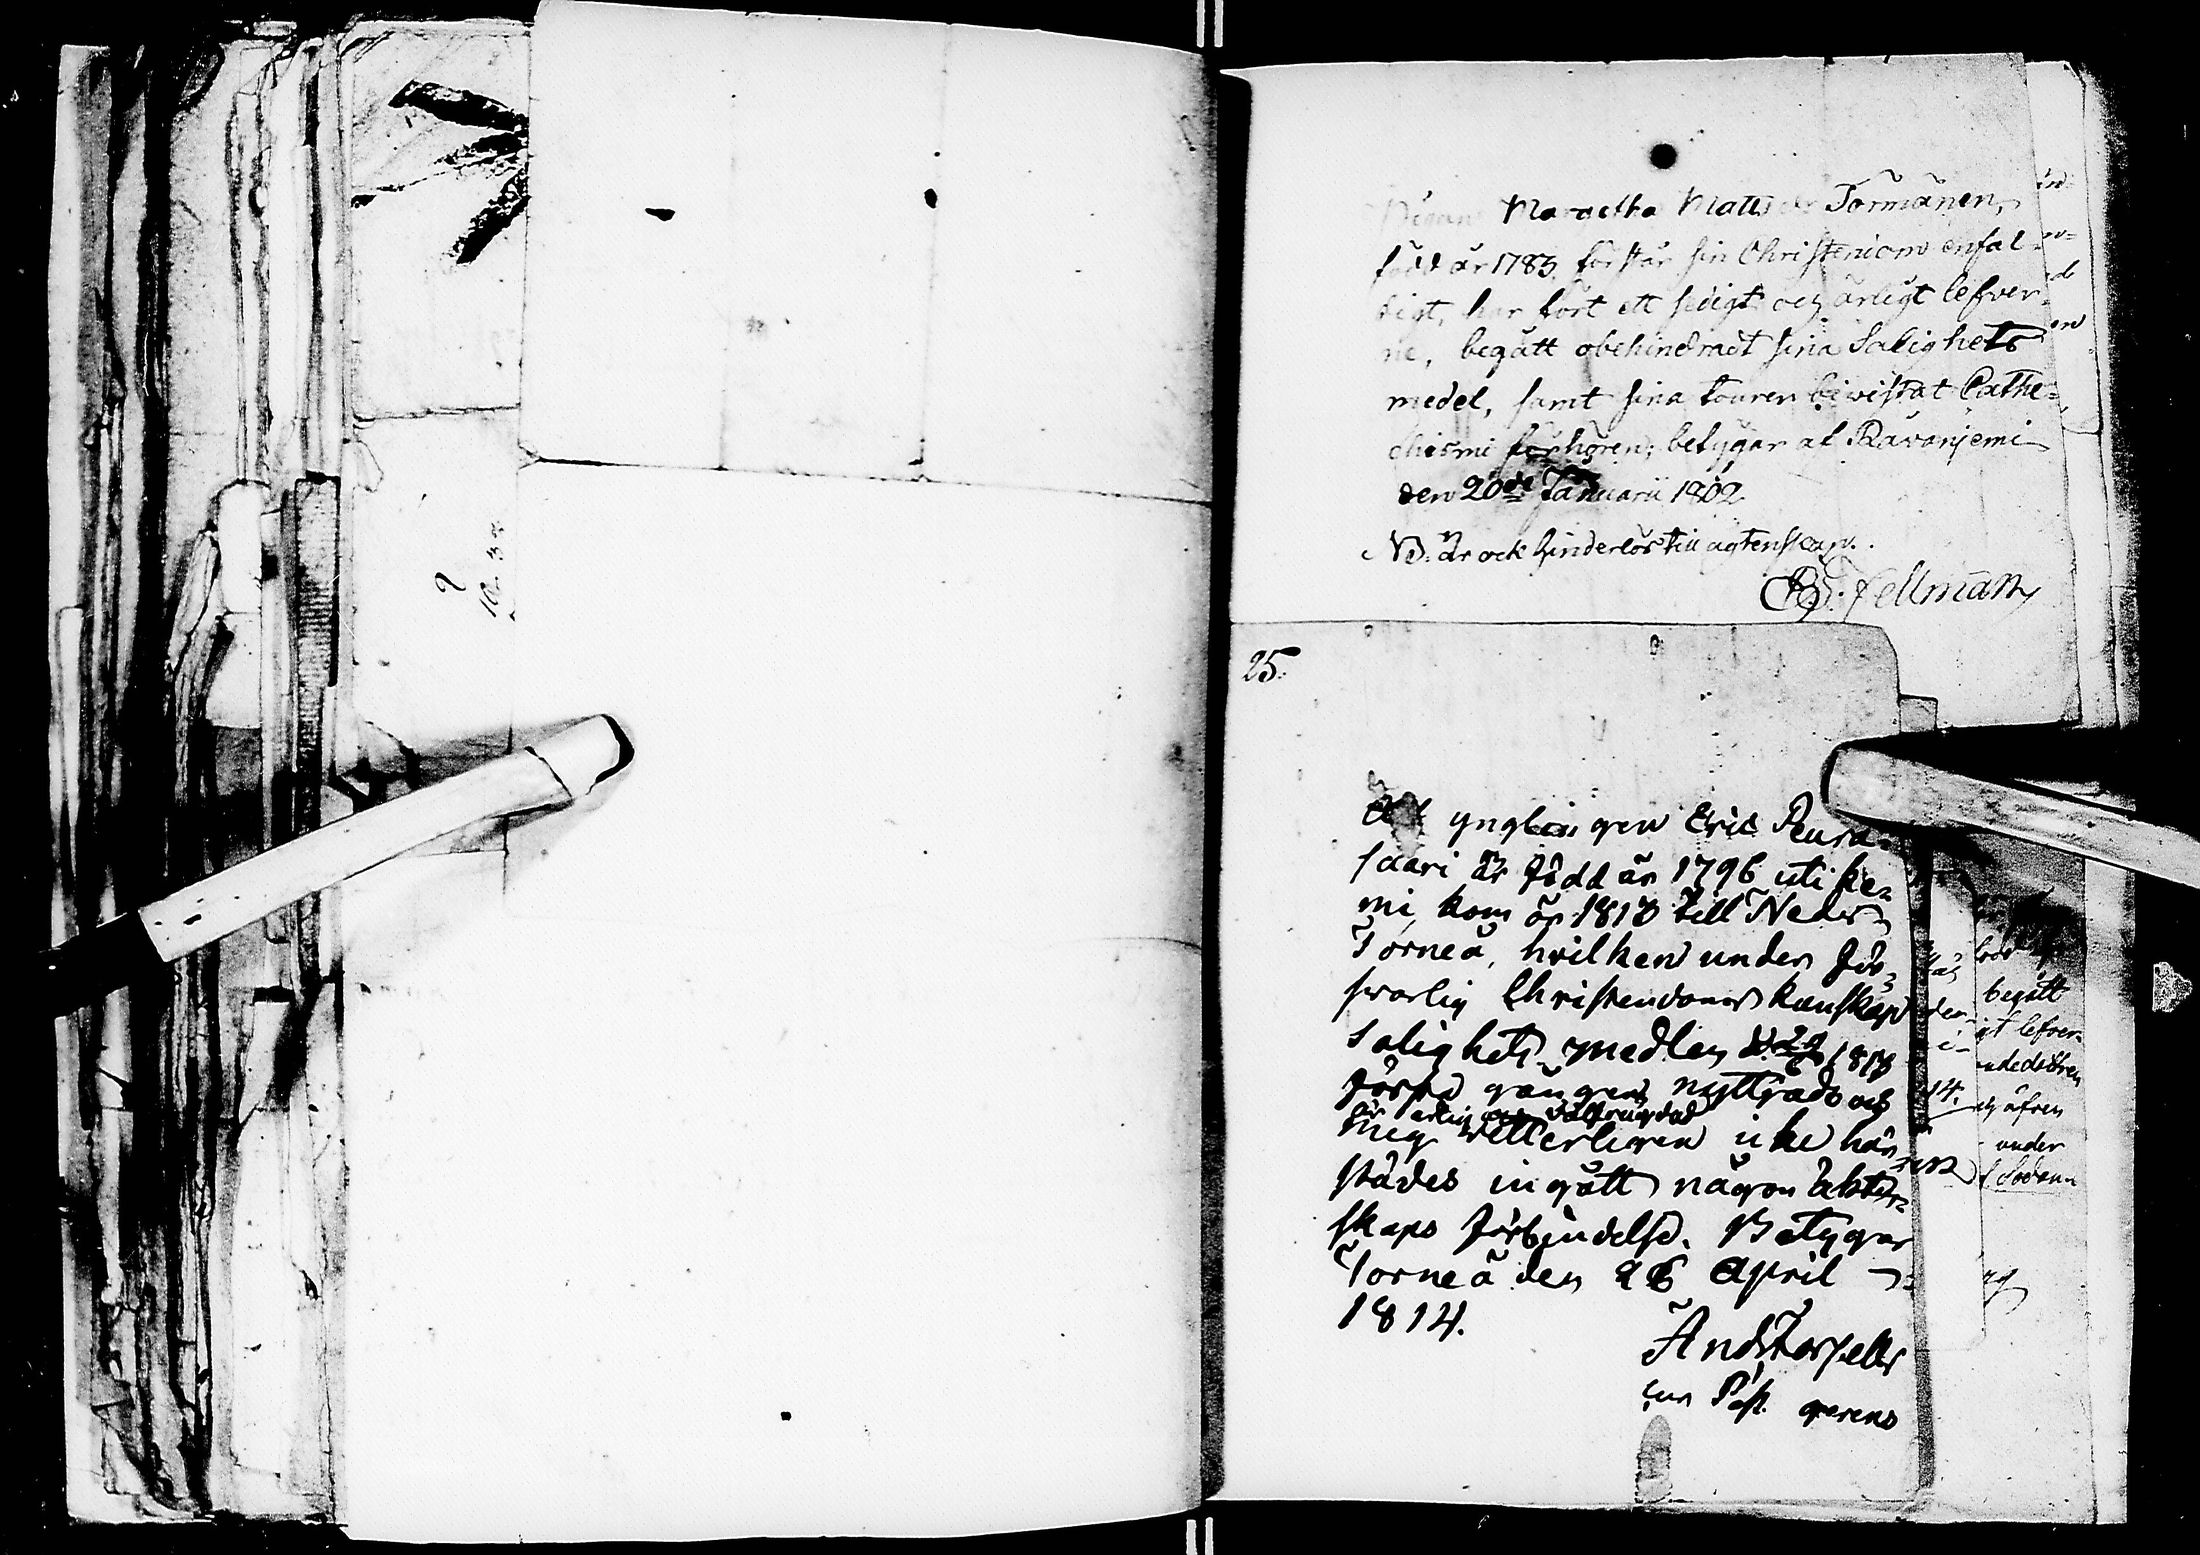 Pigan Margetha Matts dr Törmänen,
född år 1783, förstår sin Christendom enfal-
digt, har fört ett sedigt och ärligt lefver-
ne, begått obehindradt sina Salighets
medel, samt sina tourer biwistat Cathe-
chismi förhören; betygar af Råvanjemi
den 20de Januarii 1802.
NB. är ock hinderlös till ägtenskap.
E. J. Fellman
25.
Att ynglingen Eric Peura-
saari är född år 1796 uti Ke-
mi, kom år 1813 till Neder
Torneå, hvilken under för-
svarlig Christendoms kunskap
Salighets medlen d. 1813
första gången nyttjade och
är ärlig och välfrägdad
meg vetterligen icke här
städes ingått någon äkten-
skaps förbindelse. Betygar
Torneå den 26 April
1814.
And
Past. gerens
10. 37
14.
begått
gt lefver-
äfven
under